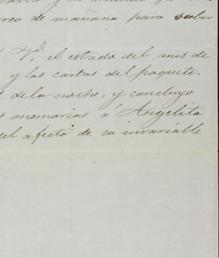 rreo de mañana para subir
Vd. el estado del mes de
y las cartas del paquete.
de la noche, y concluyo
memorias á Angelita
el afecto de su invariable